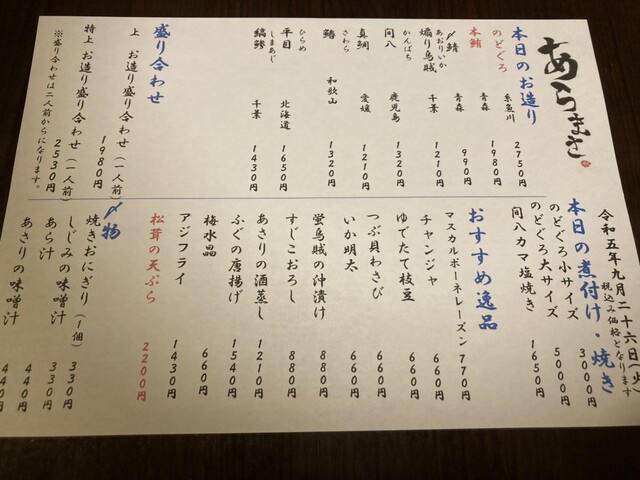 あらまさ
令和五年九月二十六日(火)
税込み価格となります
本日のお造り
のどぐろ 糸魚川 2750円
本鮪 青森 1980円
〆鯖 青森 990円
あおりいか
煽り烏賊 千葉 1210円
かんぱち
間八 鹿児島 1320円
真鯛 愛媛 1210円
さわら
鰆 和歌山 1320円
ひらめ
平目 北海道 1650円
しまあじ
縞鯵 千葉 1430円
盛り合わせ
上 お造り盛り合わせ(一人前) 1980円
特上 お造り盛り合わせ(一人前) 2530円
※盛り合わせは二人前からになります。
本日の煮付け・焼き
のどぐろ小サイズ 3000円
のどぐろ大サイズ 5000円
間八カマ塩焼き 1650円
おすすめ逸品
マスカルポーネレーズン 770円
チャンジャ 660円
ゆでたて枝豆 660円
つぶ貝わさび 660円
いか明太 660円
蛍烏賊の沖漬け 880円
すじこおろし 880円
あさりの酒蒸し 1210円
ふぐの唐揚げ 1540円
梅水晶 660円
アジフライ 1430円
松茸の天ぷら 2200円
〆物
焼きおにぎり(1個) 330円
しじみの味噌汁 330円
あら汁 440円
あさりの味噌汁 440円